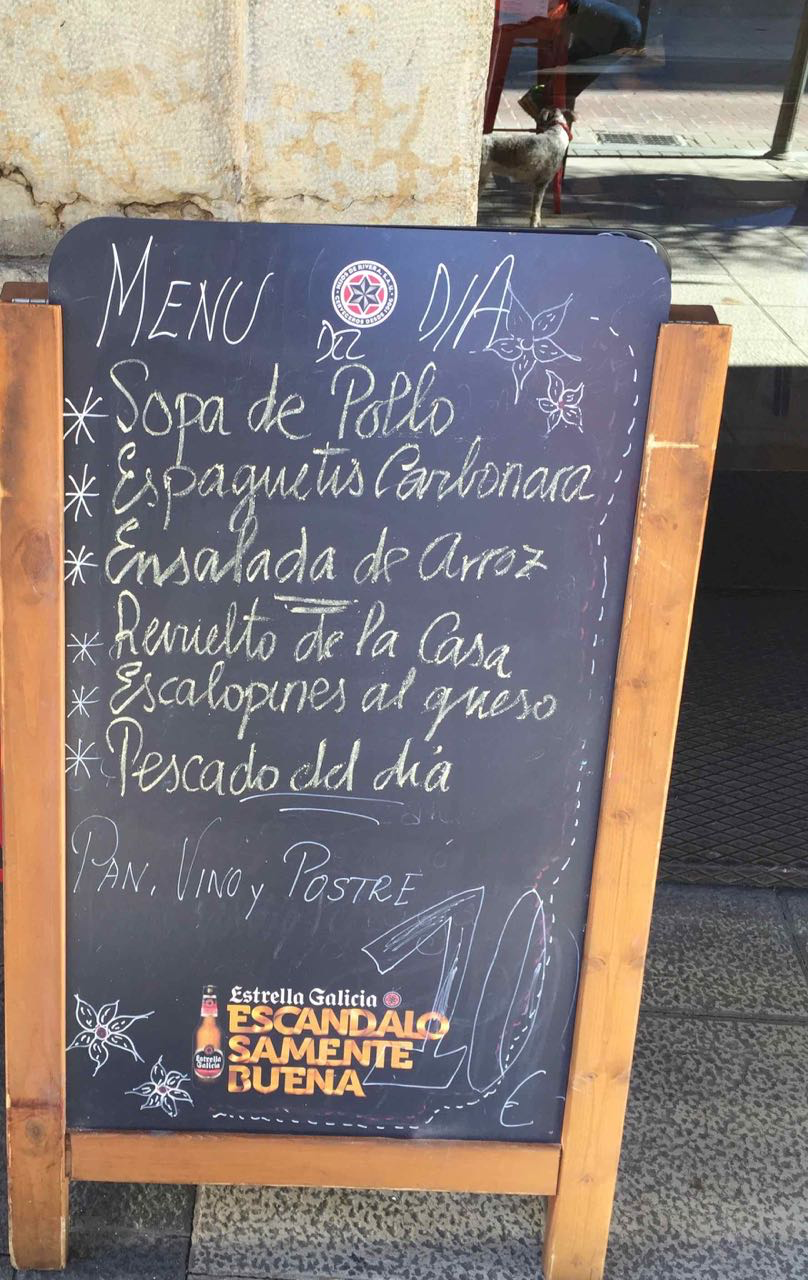 MENU DEL DIA
HIJOS DE RIVERA, S.A.U.
CERVECEROS DESDE 1906
Sopa de Pollo
Espaguetis Carbonara
Ensalada de Arroz
Revuelto de la Casa
Escalopines al queso
Pescado del día
PAN, VINO y POSTRE
10
€
Estrella Galicia
ESCANDALO
SAMENTE
BUENA
Estrella
Galicia